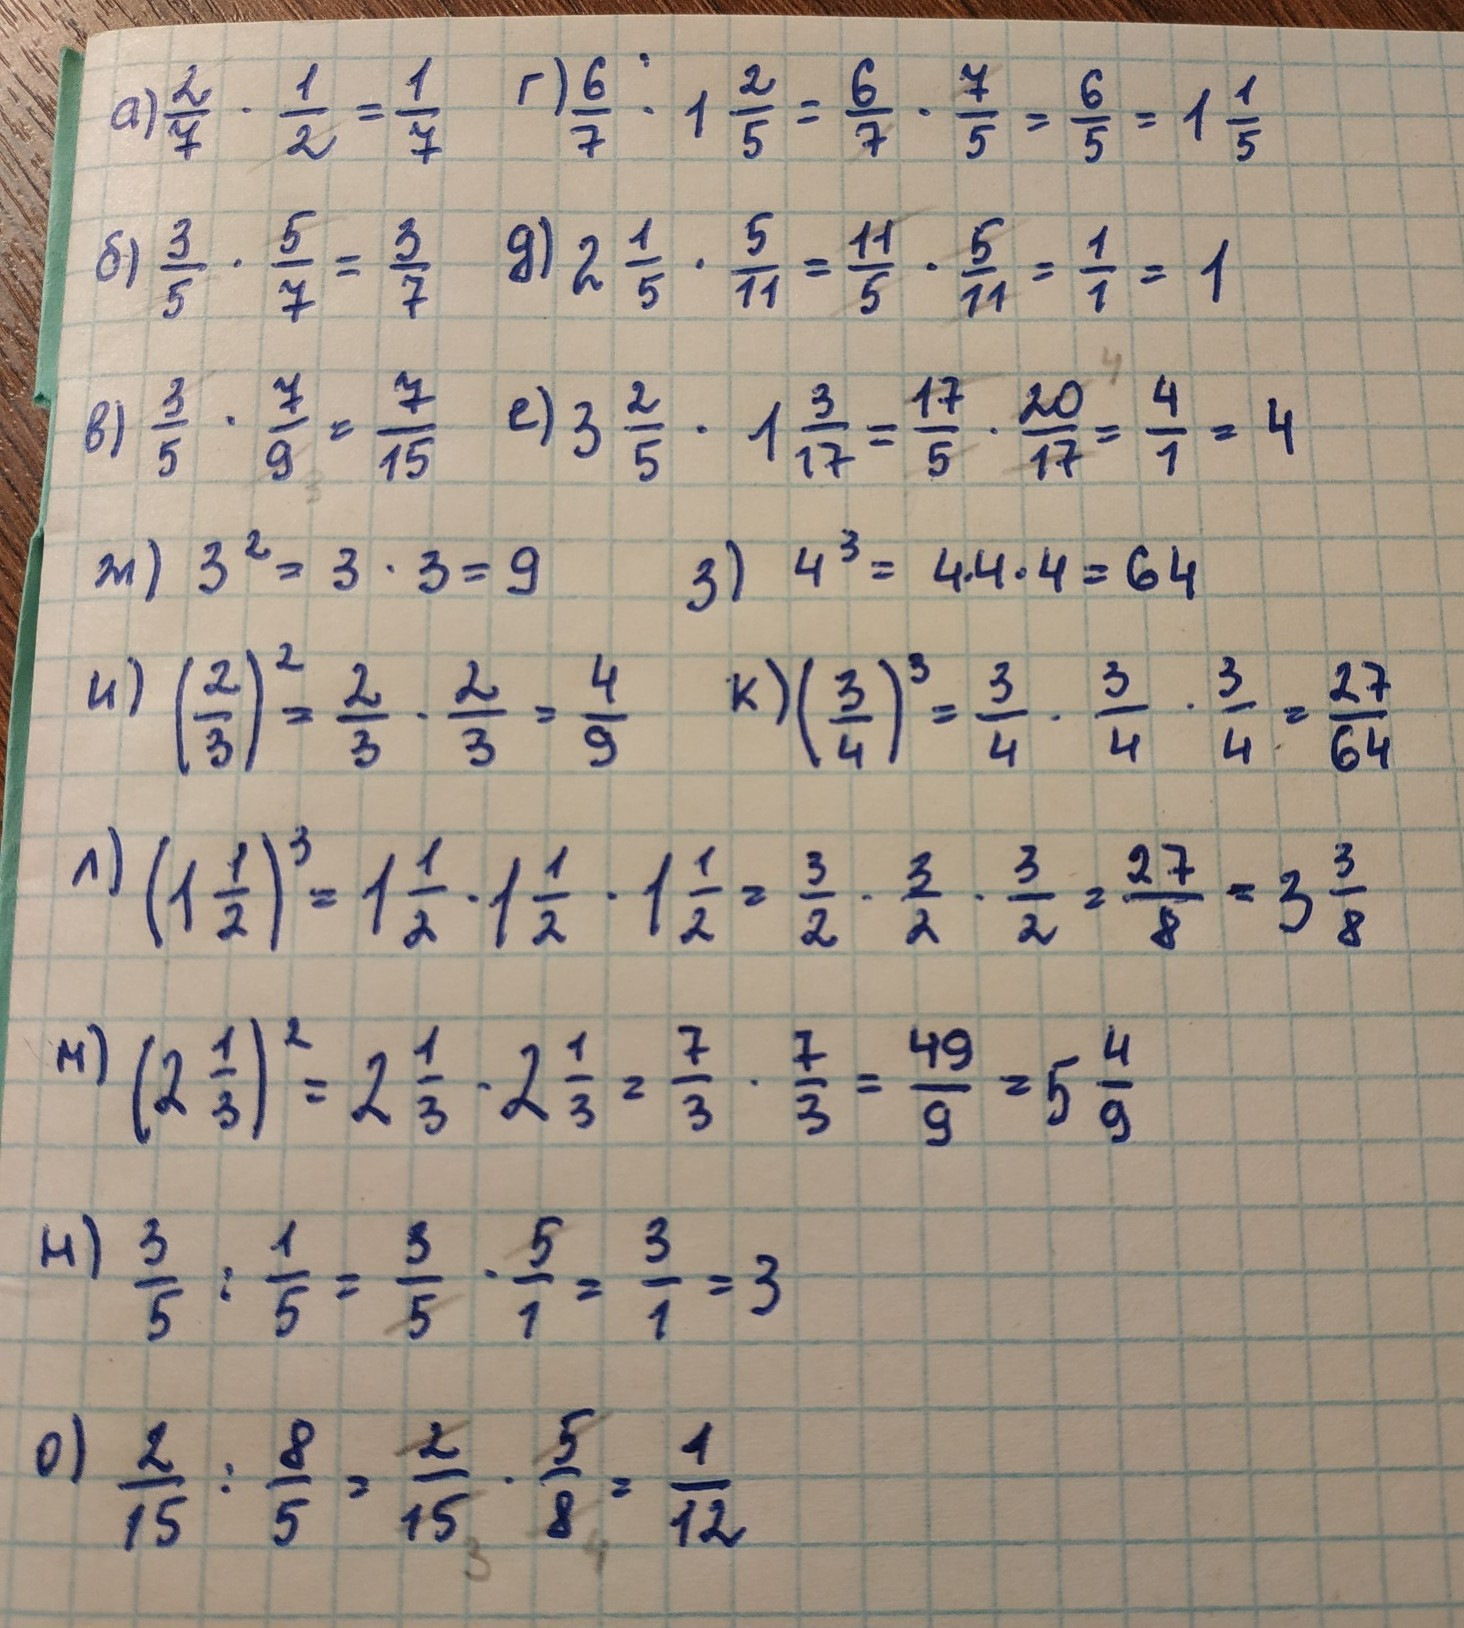 а) 2/7 · 1/2 = 1/7 г) 6/7 · 1 2/5 = 6/7 · 7/5 = 6/5 = 1 1/5
б) 3/5 · 5/7 = 3/7 д) 2 1/5 · 5/11 = 11/5 · 5/11 = 1/1 = 1
в) 3/5 · 7/9 3 = 7/15 е) 3 2/5 · 1 3/17 = 17/5 · 20/17 4 = 4/1 = 4
ж) 3² = 3 · 3 = 9 з) 4³ = 4·4·4 = 64
и) (2/3)² = 2/3 · 2/3 = 4/9 к) (3/4)³ = 3/4 · 3/4 · 3/4 = 27/64
л) (1 1/2)³ = 1 1/2 · 1 1/2 · 1 1/2 = 3/2 · 3/2 · 3/2 = 27/8 = 3 3/8
м) (2 1/3)² = 2 1/3 · 2 1/3 = 7/3 · 7/3 = 49/9 = 5 4/9
н) 3/5 : 1/5 = 3/5 · 5/1 = 3/1 = 3
о) 2/15 : 8/5 = 2/15 3 · 5/8 4 = 1/12